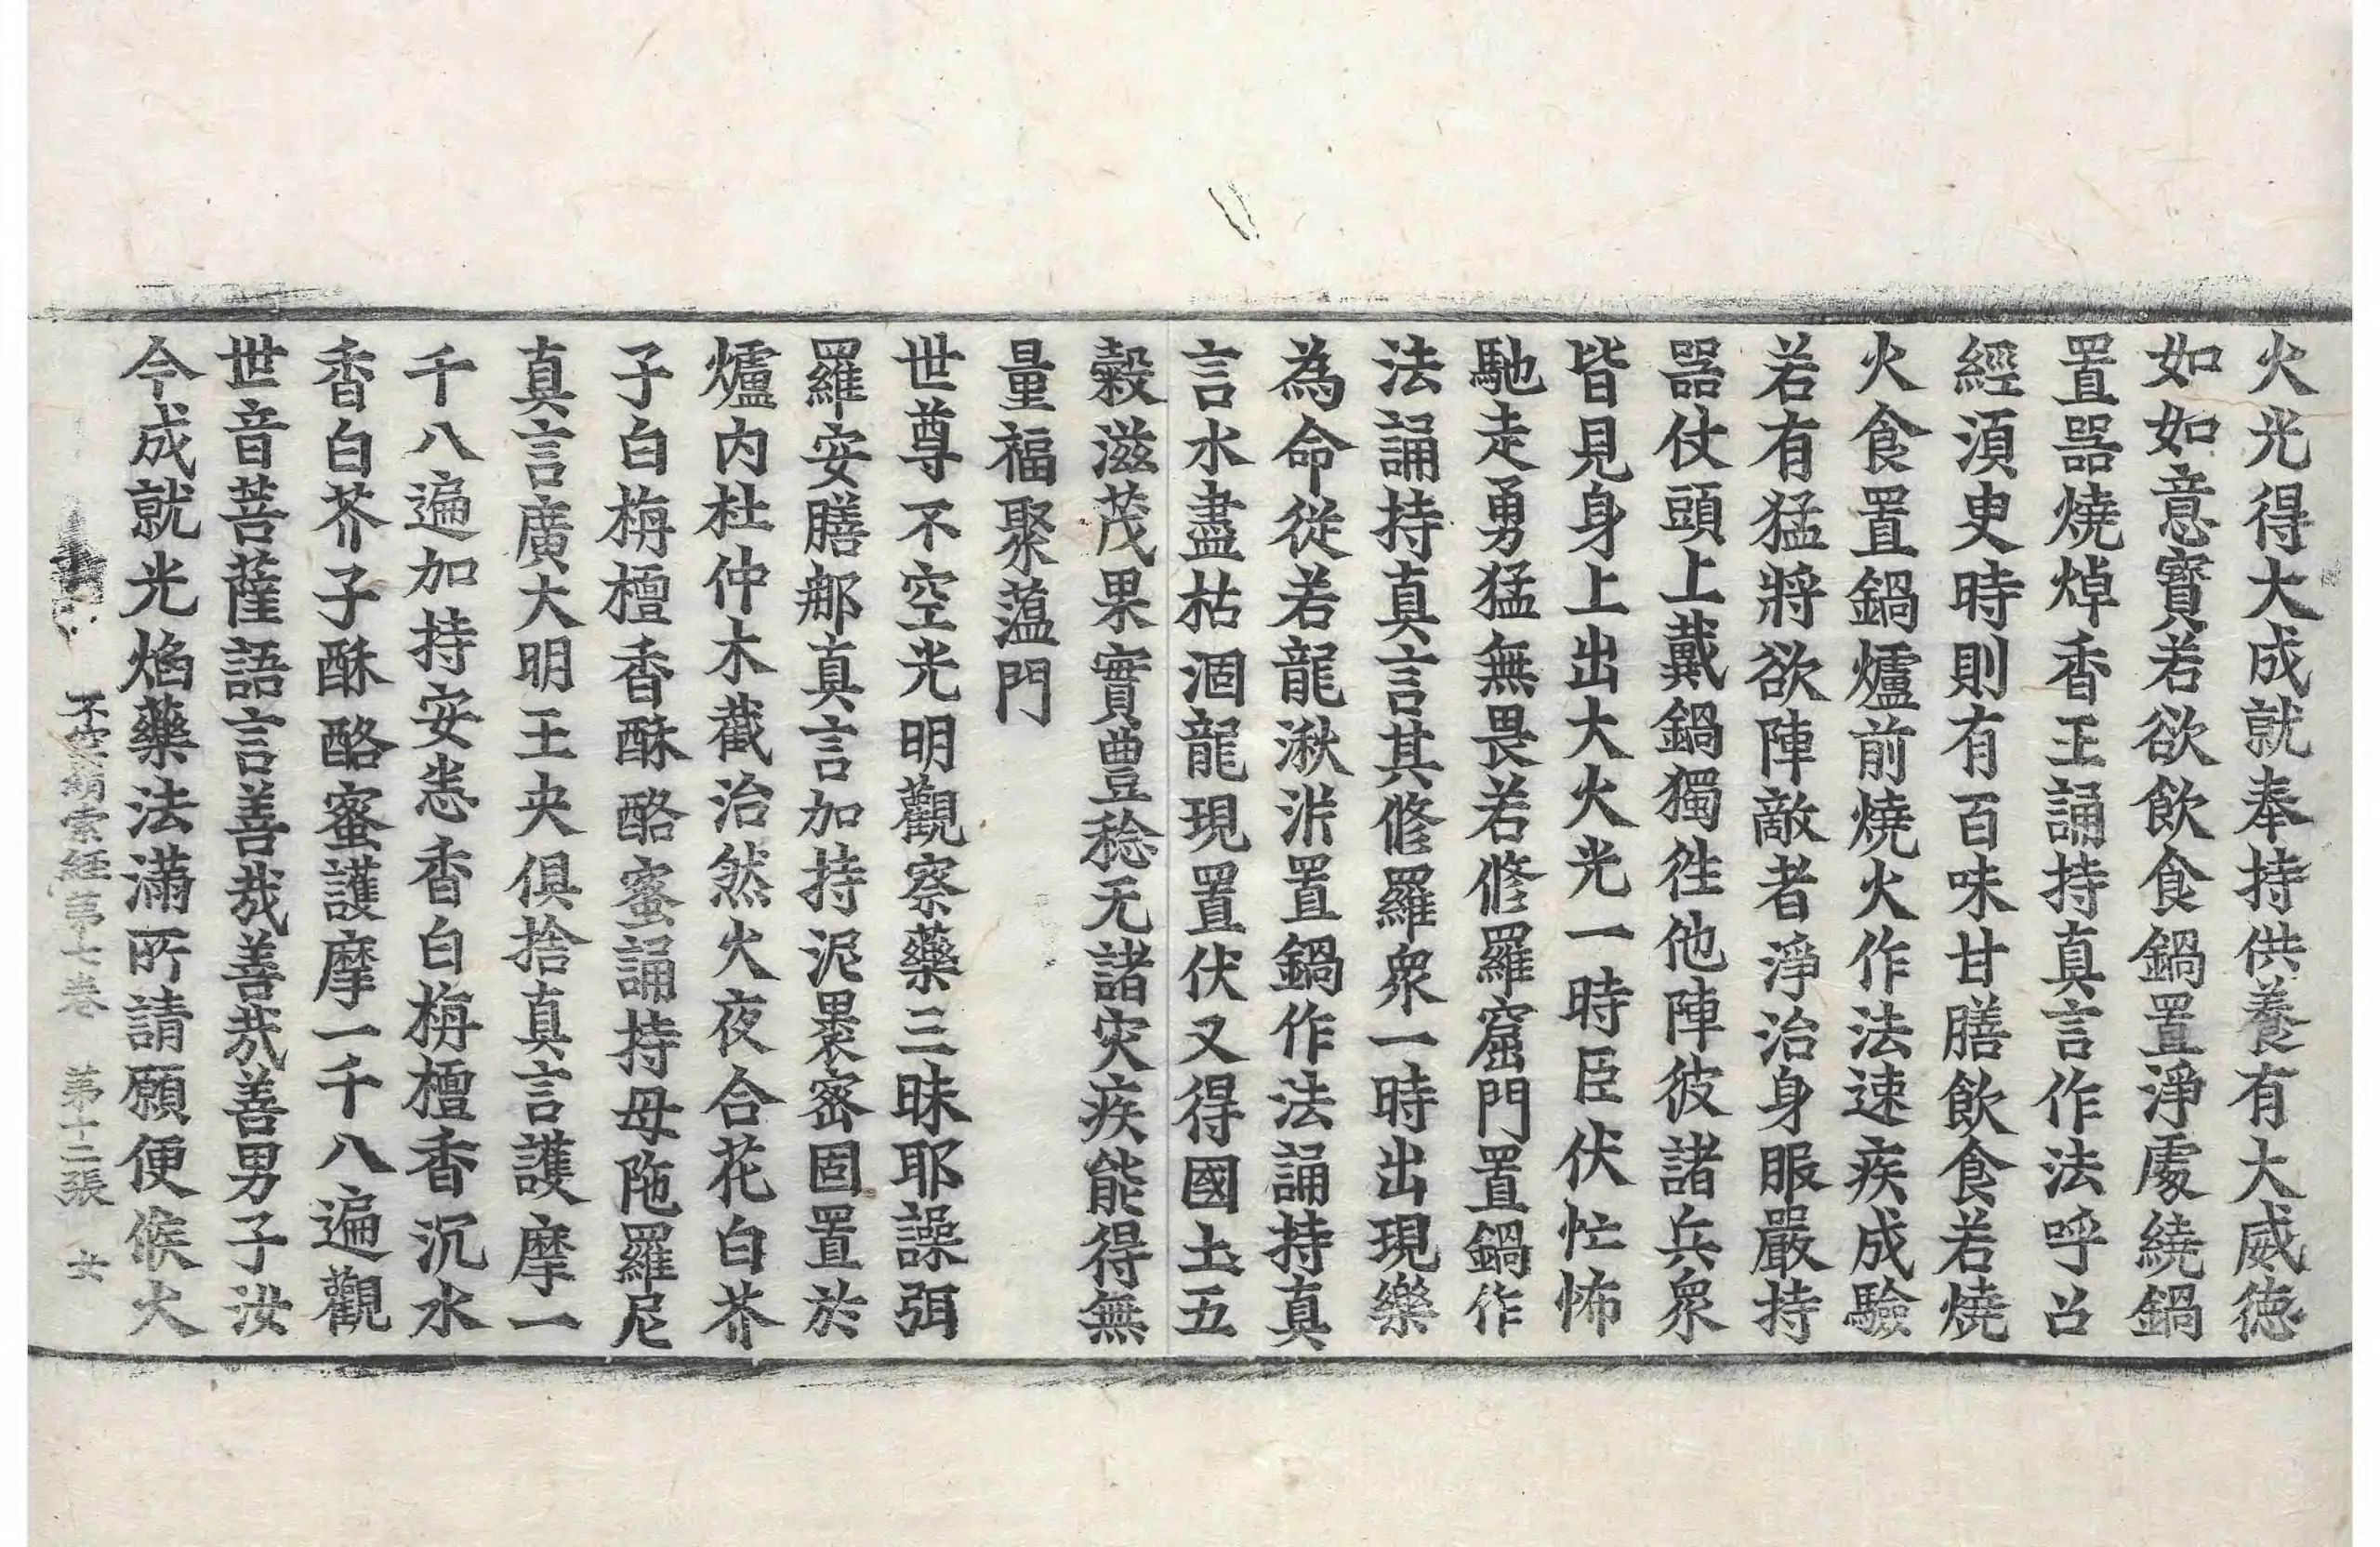 火光得大成就奉持供養有大威德
如如意寶若欲飲食鍋置淨處繞鍋
置器燒焯香王誦持真言作法呼召
經須臾時則有百味甘膳飲食若燒
火食置鍋爐前燒火作法速疾成驗
若有猛將欲陣敵者淨治身服嚴持
器仗頭上戴鍋獨往他陣彼諸兵衆
皆見身上出大火光一時臣伏忙怖
馳走勇猛無畏若修羅窟門置鍋作
法誦持真言其修羅衆一時出現樂
為命從若龍湫泮置鍋作法誦持真
言水盡枯涸龍現置伏又得國土五
穀滋茂果實豐稔无諸灾疾能得無
量福聚薀門
世尊不空光明觀察藥三昧耶譟弭
羅安膳那真言加持泥裹密固置於
爐內杜仲木截治然火夜合花白芥
子白栴檀香酥酪蜜誦持母陁羅尼
真言廣大明王央俱捨真言護摩一
千八遍加持安悉香白栴檀香沉水
香白芥子酥酪蜜護摩一千八遍觀
世音菩薩語言善哉善哉善男子汝
今成就光焰藥法滿所請願便候火
不空羂索經第七卷　第十二張　女